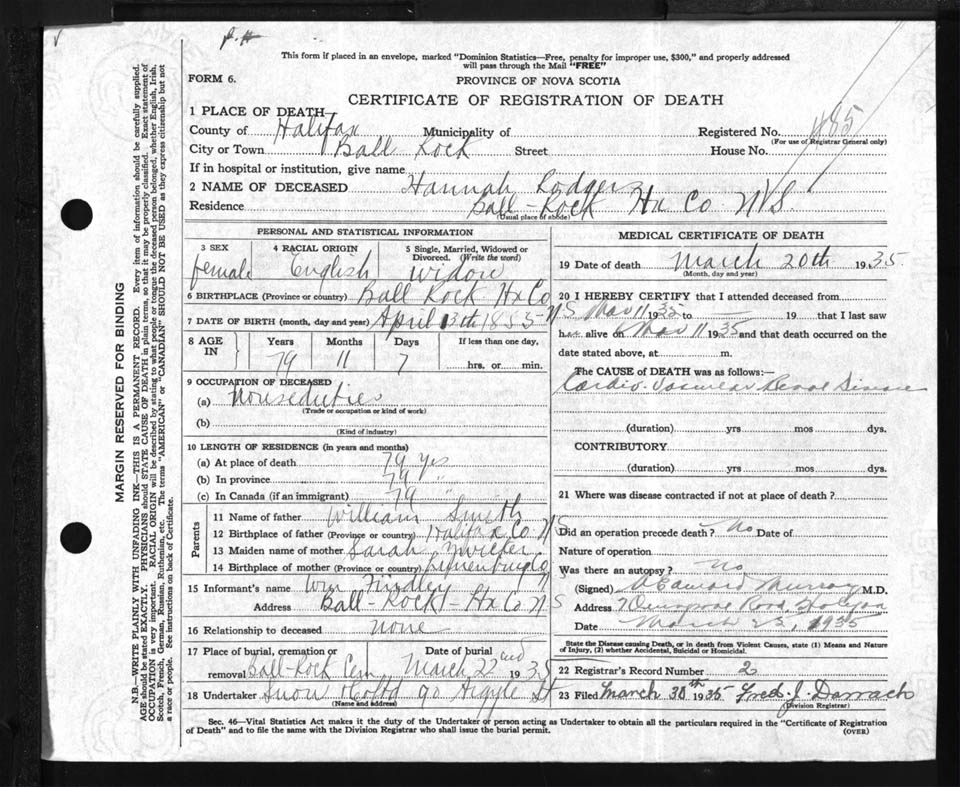 This form if placed in an envelope, marked "Dominion Statistics—Free, penalty for improper use, $300," and properly addressed
will pass through the Mail "FREE"
FORM 6.
PROVINCE OF NOVA SCOTIA
CERTIFICATE OF REGISTRATION OF DEATH
1 PLACE OF DEATH
County of Halifax Municipality of Registered No. 485
(For use of Registrar General only)
City or Town Ball Rock Street House No.
If in hospital or institution, give name
2 NAME OF DECEASED Hannah Rodgers
Residence Ball-Rock Hx Co N.S.
(Usual place of abode)
PERSONAL AND STATISTICAL INFORMATION
3 SEX 4 RACIAL ORIGIN 5 Single, Married, Widowed or Divorced. (Write the word)
female English widow
6 BIRTHPLACE (Province or country) Ball Rock Hx Co NS
7 DATE OF BIRTH (month, day and year) April 13th 1855
8 AGE IN Years Months Days If less than one day,
79 11 7 hrs. or min.
9 OCCUPATION OF DECEASED
(a) Houseduties
(Trade or occupation or kind of work)
(b)
(Kind of industry)
10 LENGTH OF RESIDENCE (in years and months)
(a) At place of death 79 yrs
(b) In province 79 "
(c) In Canada (if an immigrant) 79 "
Parents
11 Name of father William Smith
12 Birthplace of father (Province or country) Halifax Co. NS
13 Maiden name of mother Sarah
14 Birthplace of mother (Province or country) Lunenburg Co
15 Informant's name Wm Findley
Address Ball-Rock - Hx Co NS
16 Relationship to deceased none
17 Place of burial, cremation or removal Date of burial
Ball-Rock Cem March 22nd 1935
18 Undertaker Snow & Co Ltd 90 Argyle St
(Name and address)
MEDICAL CERTIFICATE OF DEATH
19 Date of death March 20th 1935
(Month, day and year)
20 I HEREBY CERTIFY that I attended deceased from
Mar 11 1935 to — 19 that I last saw
her alive on Mar 11 1935 and that death occurred on the
date stated above, at m.
The CAUSE of DEATH was as follows:—
Cardio-Vascular Renal Disease
(duration) yrs mos dys.
CONTRIBUTORY
(duration) yrs mos dys.
21 Where was disease contracted if not at place of death?
Did an operation precede death? No Date of
Nature of operation
Was there an autopsy? No
(Signed) Edward Murray M.D.
Address Road, Halifax
Date March 23, 1935
State the Disease causing Death, or in death from Violent Causes, state (1) Means and Nature of Injury, (2) whether Accidental, Suicidal or Homicidal.
22 Registrar's Record Number 2
23 Filed March 30th 1935 Fred. J. Darrach
(Division Registrar)
Sec. 46—Vital Statistics Act makes it the duty of the Undertaker or person acting as Undertaker to obtain all the particulars required in the "Certificate of Registration
of Death" and to file the same with the Division Registrar who shall issue the burial permit.
(OVER)
MARGIN RESERVED FOR BINDING
N.B.—WRITE PLAINLY WITH UNFADING INK—THIS IS A PERMANENT RECORD. Every item of information should be carefully supplied.
AGE should be stated EXACTLY. PHYSICIANS should STATE CAUSE OF DEATH in plain terms, so that it may be properly classified. Exact statement of
OCCUPATION is very important. RACIAL ORIGIN will be described by stating to what people or tongue the deceased person belonged, whether English, Irish,
Scotch, French, German, Russian, Ruthenian, etc. The terms "AMERICAN" or "CANADIAN" SHOULD NOT BE USED as they express citizenship but not
a race or people. See instructions on back of Certificate.